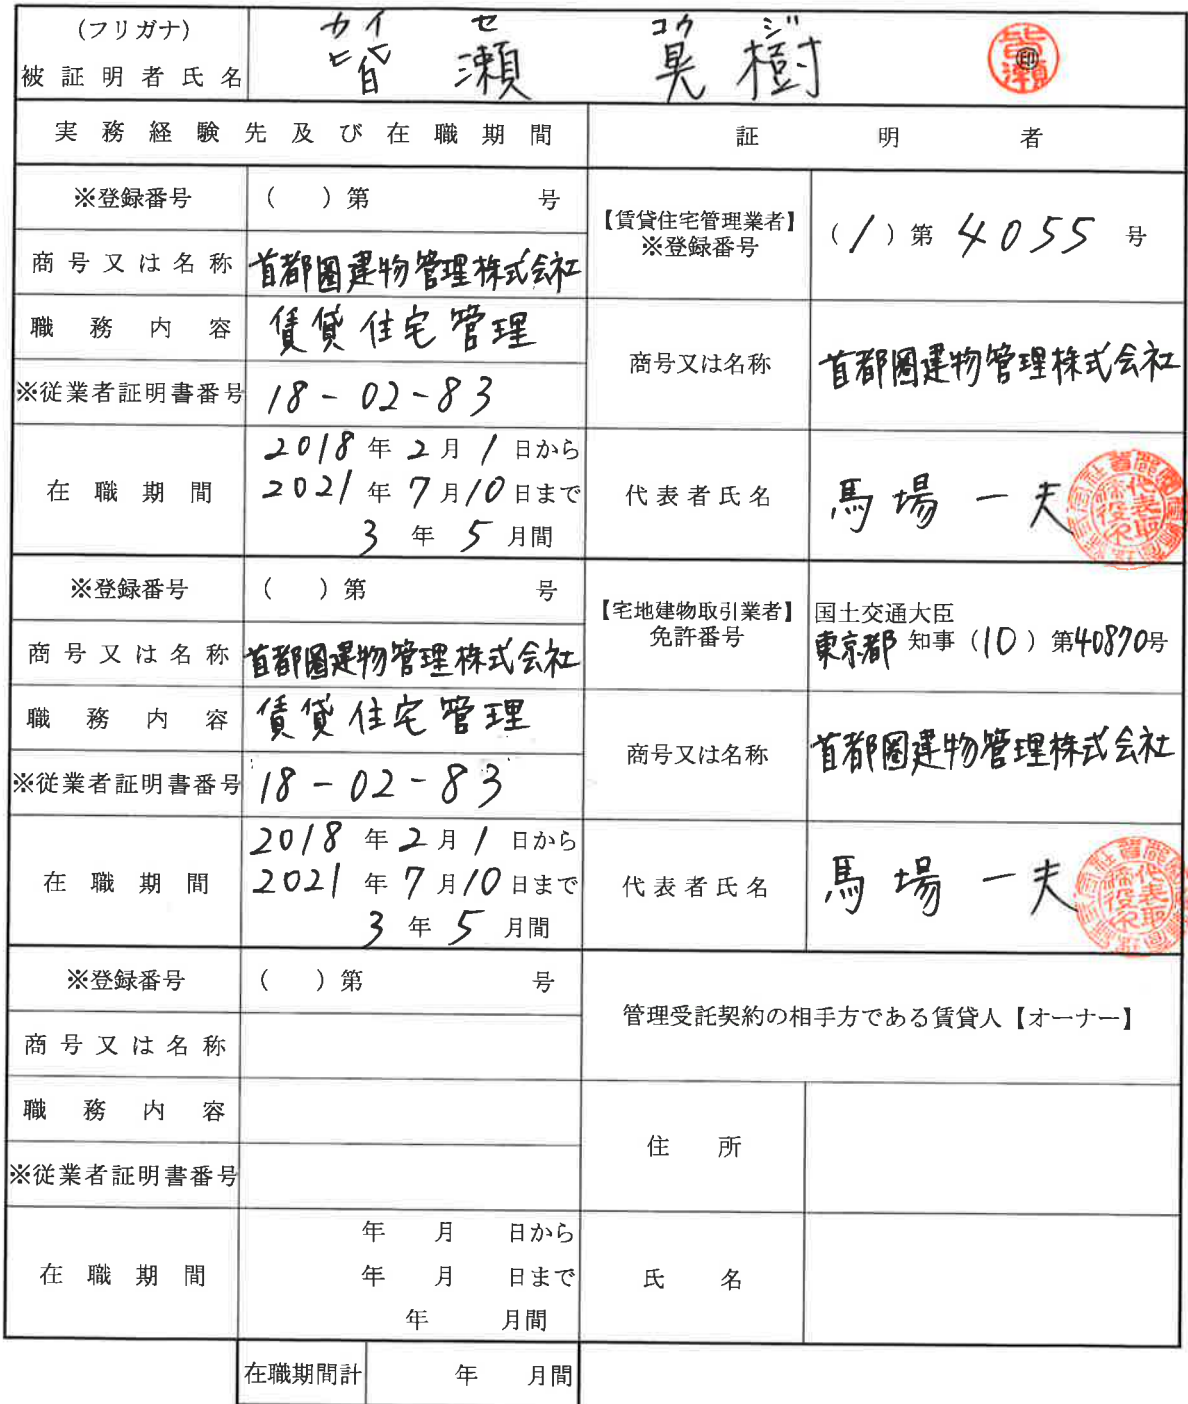 (フリガナ) カイ セ コウ ジ
被証明者氏名 皆瀬 晃樹 ㊞ 皆瀬
実務経験先及び在職期間 証明者
※登録番号 ( )第 号
商号又は名称 首都圏建物管理株式会社
職務内容 賃貸住宅管理
※従業者証明書番号 18-02-83
在職期間 2018年2月1日から
2021年7月10日まで
3年5月間
【賃貸住宅管理業者】
※登録番号 (1)第4055号
商号又は名称 首都圏建物管理株式会社
代表者氏名 馬場一夫
代表取締役
※登録番号 ( )第 号
商号又は名称 首都圏建物管理株式会社
職務内容 賃貸住宅管理
※従業者証明書番号 18-02-83
在職期間 2018年2月1日から
2021年7月10日まで
3年5月間
【宅地建物取引業者】 国土交通大臣
免許番号 東京都知事(10)第40870号
商号又は名称 首都圏建物管理株式会社
代表者氏名 馬場一夫
代表取締役
※登録番号 ( )第 号
商号又は名称
職務内容
※従業者証明書番号
在職期間 年 月 日から
年 月 日まで
年 月間
管理受託契約の相手方である賃貸人【オーナー】
住所
氏名
在職期間計 年 月間